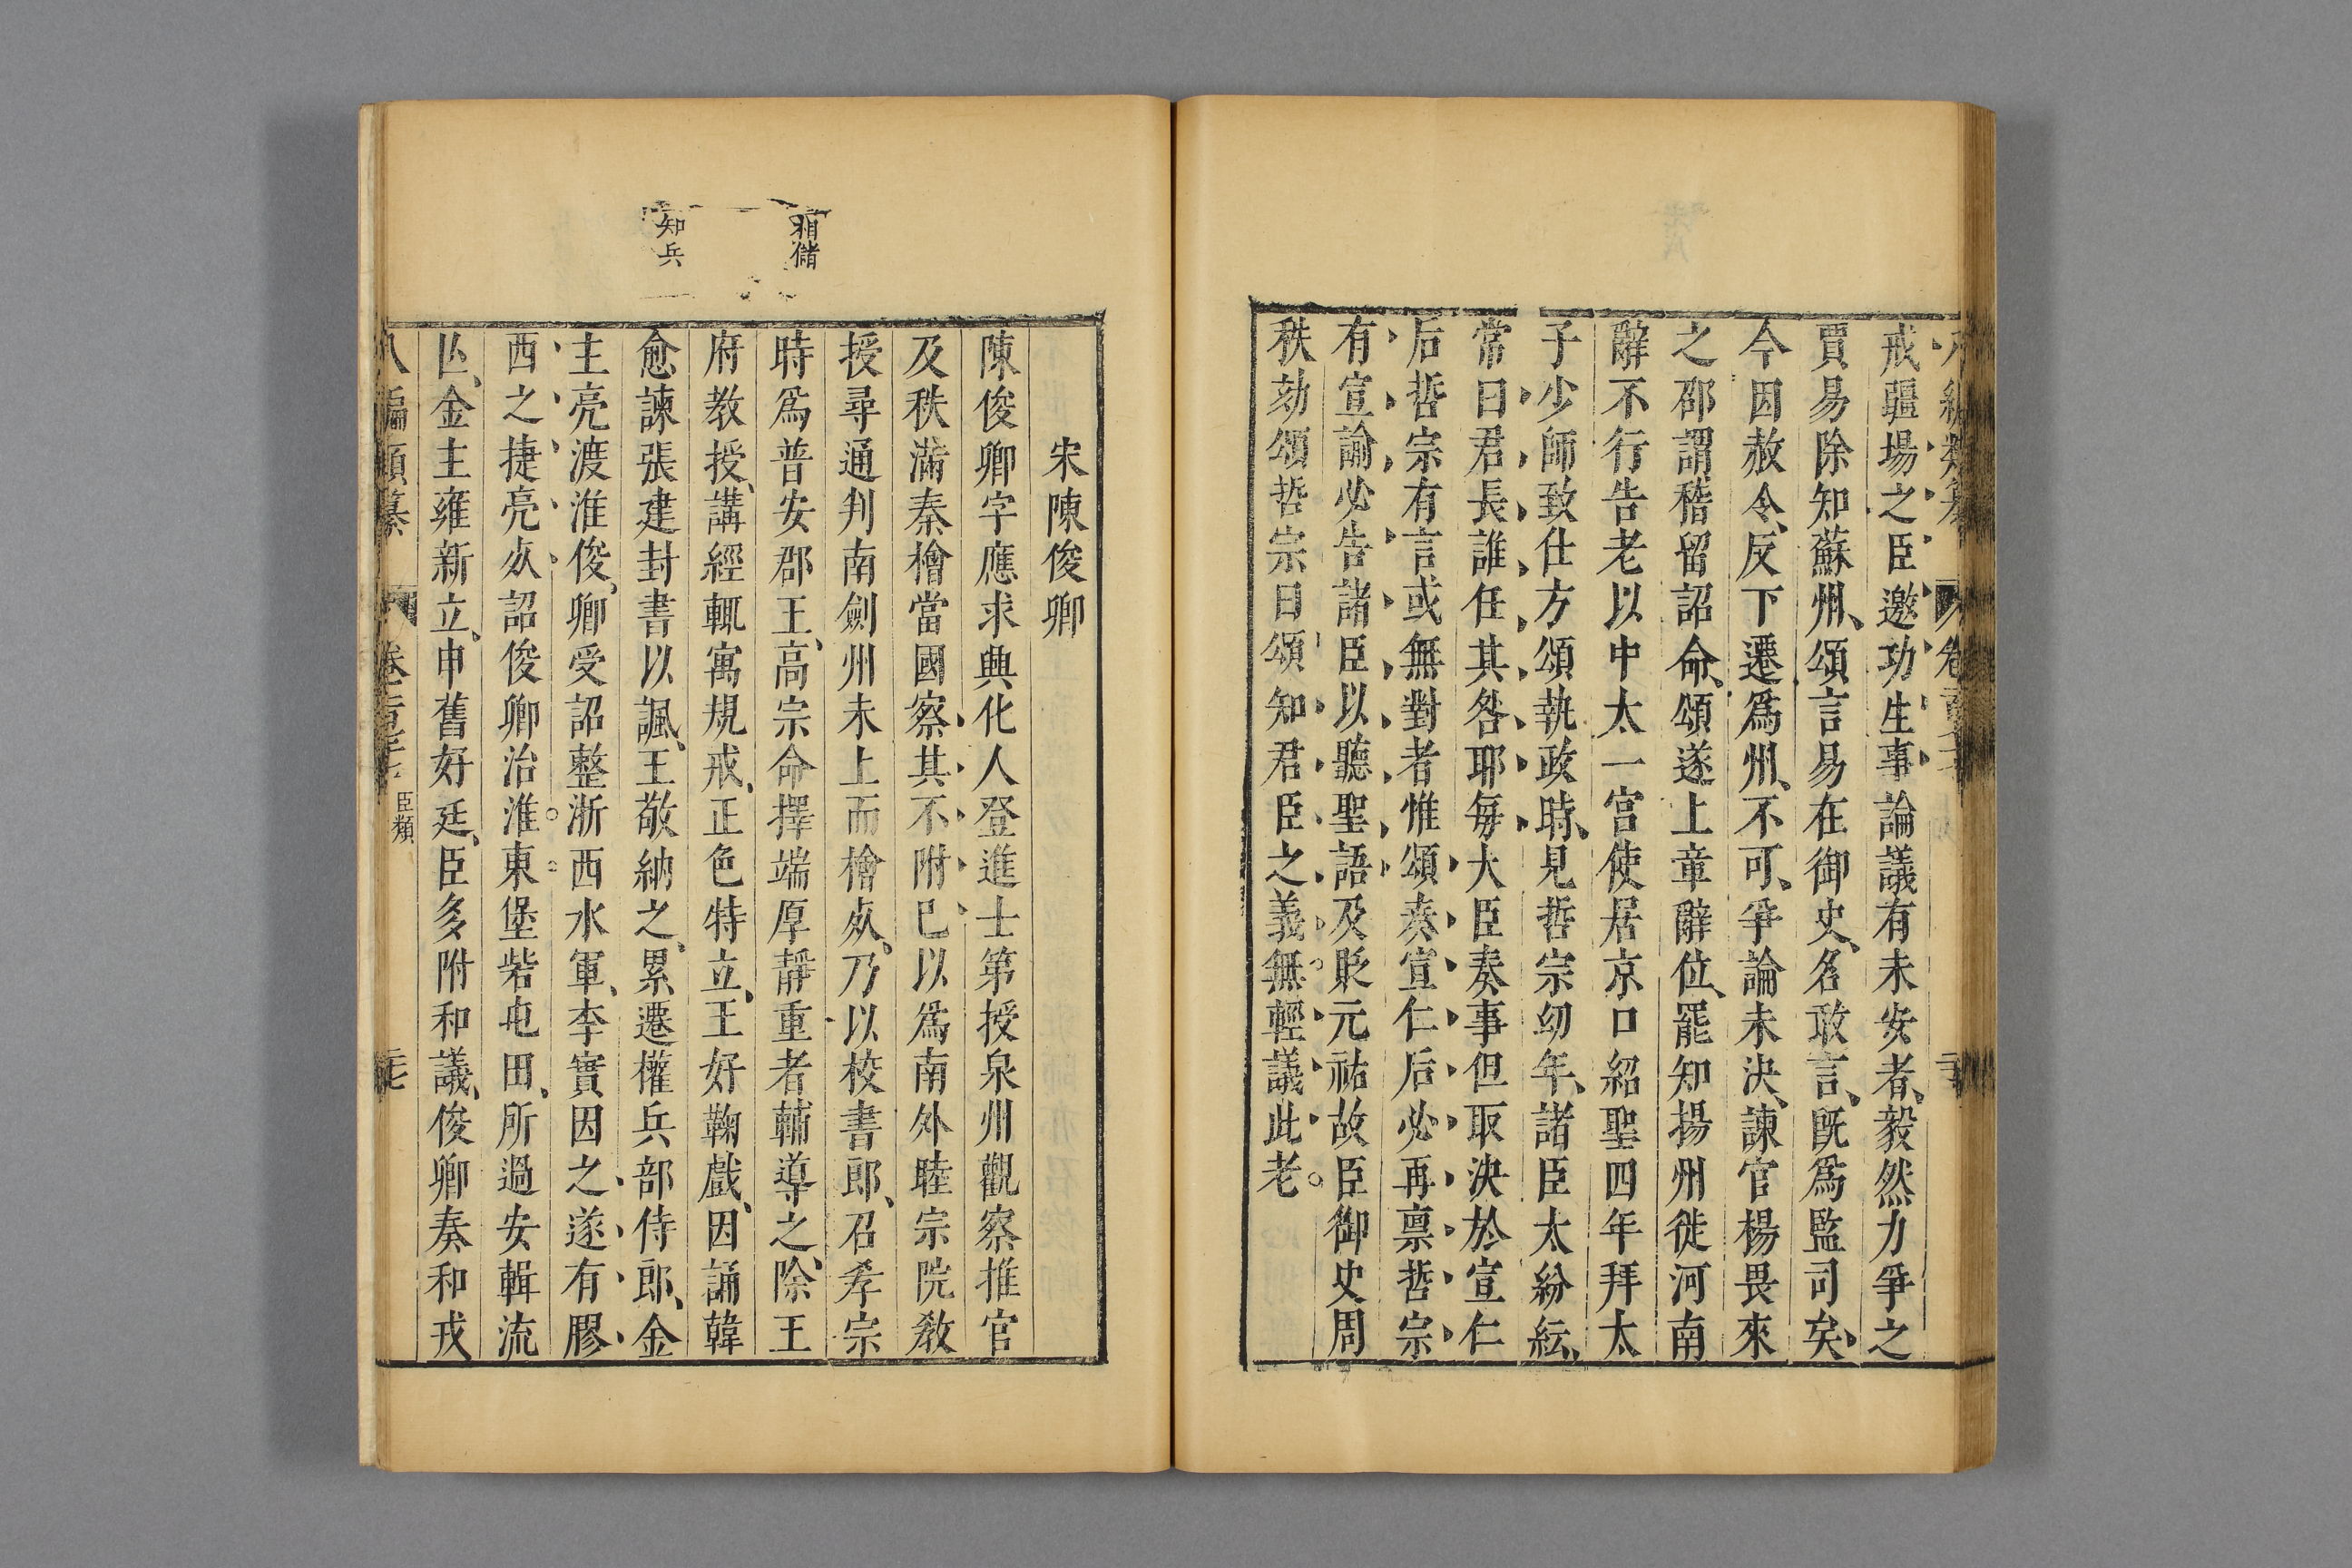 戒疆場之臣邀功生事論議有未安者、毅然力爭之
賈易除知蘇州、頌言易在御史、名敢言、旣爲監司矣、
今因赦令、反下遷爲州、不可、爭論未決、諫官楊畏來
之邵謂稽留詔命、頌遂上章辭位、罷知揚州徙河南
辭不行告老以中太一宮使居京口紹聖四年拜太
子少師致仕方頌執政時、見哲宗幼年、諸臣太紛紜、
常曰君長誰任其咎耶每大臣奏事但取決於宣仁
后哲宗有言或無對者惟頌奏宣仁后必再稟哲宗
有宣諭必告諸臣以聽聖語及貶元祐故臣御史周
秩劾頌哲宗曰頌知君臣之義無輕議此老。
相儲
知兵
宋陳俊卿
陳俊卿字應求興化人登進士第授泉州觀察推官
及秩滿秦檜當國察其不附已以爲南外睦宗院敎
授尋通判南劍州未上而檜死、乃以校書郎、召孝宗
時爲普安郡王、高宗命擇端厚靜重者輔導之、除王
府教授、講經輒寓規戒、正色特立、王好鞠戲、因誦韓
愈諫張建封書以諷、王敬納之、累遷權兵部侍郎、金
主亮渡淮俊卿受詔整浙西水軍、李寶因之遂有膠
西之捷亮死詔俊卿治淮東堡砦屯田、所過安輯流
亾、金主雍新立、申舊好、廷臣多附和議、俊卿奏和戎
八編類纂
臣類